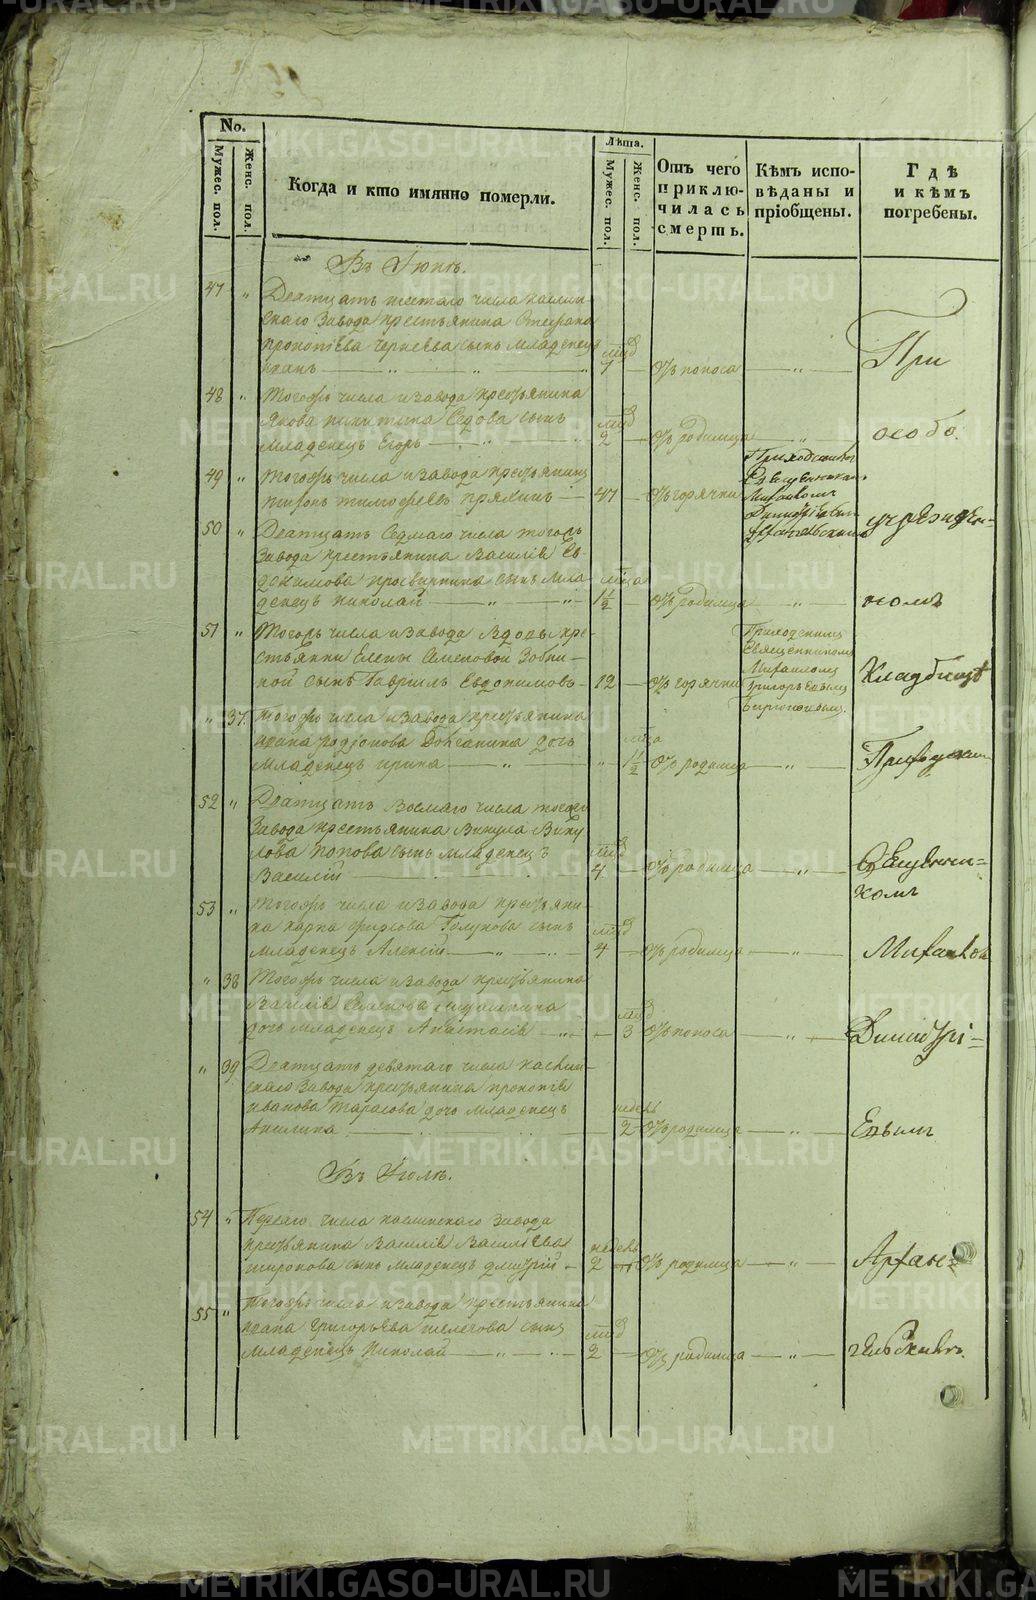 No.
Мужес. пол.
Женс. пол.
Когда и кто имянно померли.
Лѣта.
Мужес. пол.
Женс. пол.
Отъ чего
приклю-
чилась
смерть.
Кѣмъ испо-
вѣданы и
пріобщены.
Гдѣ
и кѣмъ
погребены.
Въ Іюнѣ.
47 „ Дватцать шестаго числа каслин-
скаго завода крестьянина Стефана
прокопіева сынъ младенецъ
иванъ 7 отъ поноса
При
48 „ Тогожъ числа и завода крестьянина
Якова никитина Седова сынъ
младенецъ Егоръ 2 отъ родимца
особо
49 „ Тогожъ числа и завода крестьянинъ
тимофеевъ 47 отъ горячки
Приходскимъ
Священникомъ
Михаиломъ
Димитріевымъ
Архангельскимъ
учрежден-
50 „ Дватцать Седмаго числа тогожъ
завода крестьянина Василія Ев-
докимова просвирнина сынъ мла-
денецъ николай 1½ отъ родимца
номъ
51 „ Тогожъ числа и завода вдовы кре-
стьянки Елены Семеновой
сынъ Гавриилъ Евдокимовъ 12 отъ горячки
Приходскимъ
Священникомъ
Михаиломъ
Григорьевымъ
Кладбищѣ
„ 37 Тогожъ числа и завода крестьянина
ивана родіонова дочь
младенецъ ирина 1½ отъ родимца
Приходским
52 „ Дватцать восмаго числа тогожъ
завода крестьянина Викула Вику
лова попова сынъ младенецъ
Василій 4 отъ родимца
Священни-
комъ
53 „ Тогожъ числа и завода крестьяни-
на карпа фирсова Голунова сынъ
младенецъ Алексій 4 отъ родимца
Михаилом
„ 38 Тогожъ числа и завода крестьянина
Василія Семенова
дочь младенецъ Анастасія 3 отъ поноса
Димитрі-
„ 39 Дватцать девятаго числа каслин-
скаго завода крестьянина прокопія
иванова Тарасова дочь младенецъ
Акилина недель 2 отъ родимца
Евымъ
Въ Іюлѣ.
54 „ Перваго числа каслинскаго завода
крестьянина Василія Василіева
широкова сынъ младенецъ дмитрій недель 2 отъ родимца
Архан-
55 „ Тогожъ числа и завода крестьянина
ивана григорьева шелехова сынъ
младенецъ Николай 2 отъ родимца
гельскимъ.
METRIKI.GASO-URAL.RU